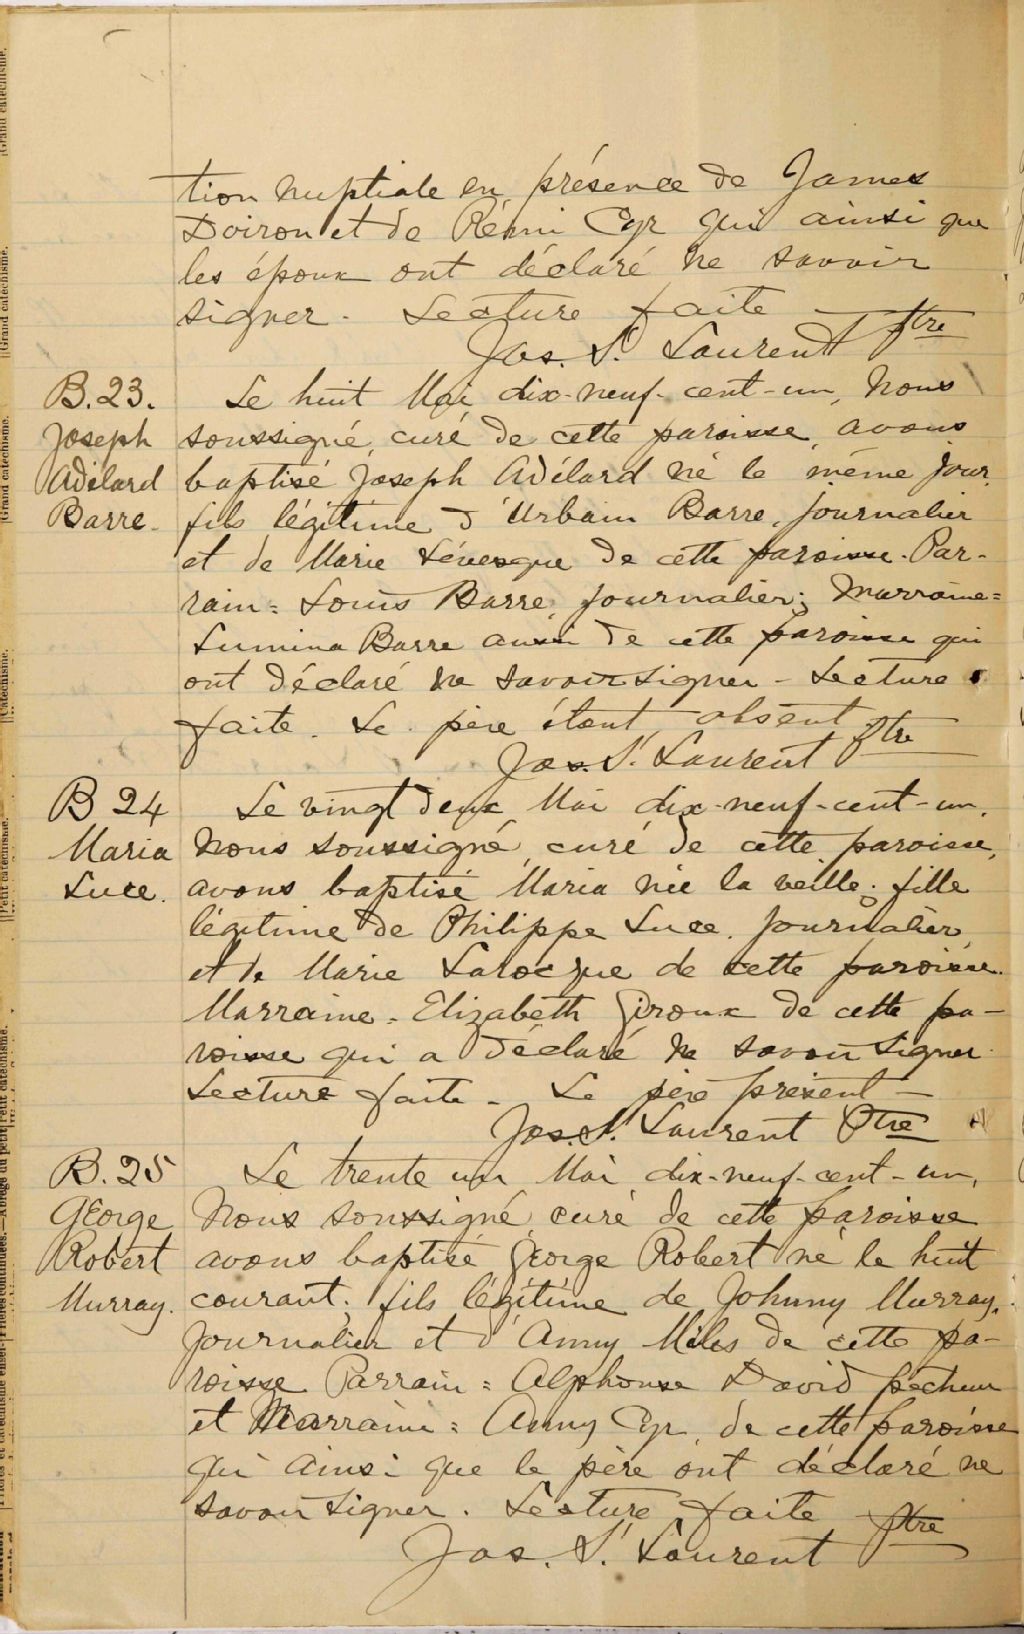 tion nuptiale en présence de James
Doiron et de Rémi Cyr qui ainsi que
les époux ont déclaré ne savoir
signer. Lecture faite —
Jos. St Laurent Ptre
B. 23.
Joseph
Adélard
Barre.
Le huit Mai dix-neuf-cent-un, Nous
soussigné, curé de cette paroisse, avons
baptisé Joseph Adélard né le même jour,
fils légitime d'Urbain Barre, journalier
et de Marie Lévesque de cette paroisse. Par-
rain = Louis Barre, journalier; Marraine =
Lumina Barre aussi de cette paroisse qui
ont déclaré ne savoir signer - Lecture
faite. Le père étant absent
Jos. St Laurent Ptre
B 24
Maria
Luce.
Le vingt deux Mai dix-neuf-cent-un,
Nous soussigné, curé de cette paroisse,
avons baptisé Maria née la veille; fille
légitime de Philippe Luce, journalier,
et de Marie Larocque de cette paroisse.
Marraine = Elizabeth Giroux de cette pa-
roisse qui a déclaré ne savoir signer.
Lecture faite - Le père présent —
Jos. St Laurent Ptre
B. 25
George
Robert
Murray.
Le trente un Mai dix-neuf-cent-un,
Nous soussigné, curé de cette paroisse
avons baptisé George Robert né le huit
courant; fils légitime de Johnny Murray,
journalier et d'Anny Miles de cette pa-
roisse Parrain = Alphonse David pêcheur
et Marraine = Anny Cyr, de cette paroisse
qui ainsi que le père ont déclaré ne
savoir signer. Lecture faite
Jos. St Laurent Ptre